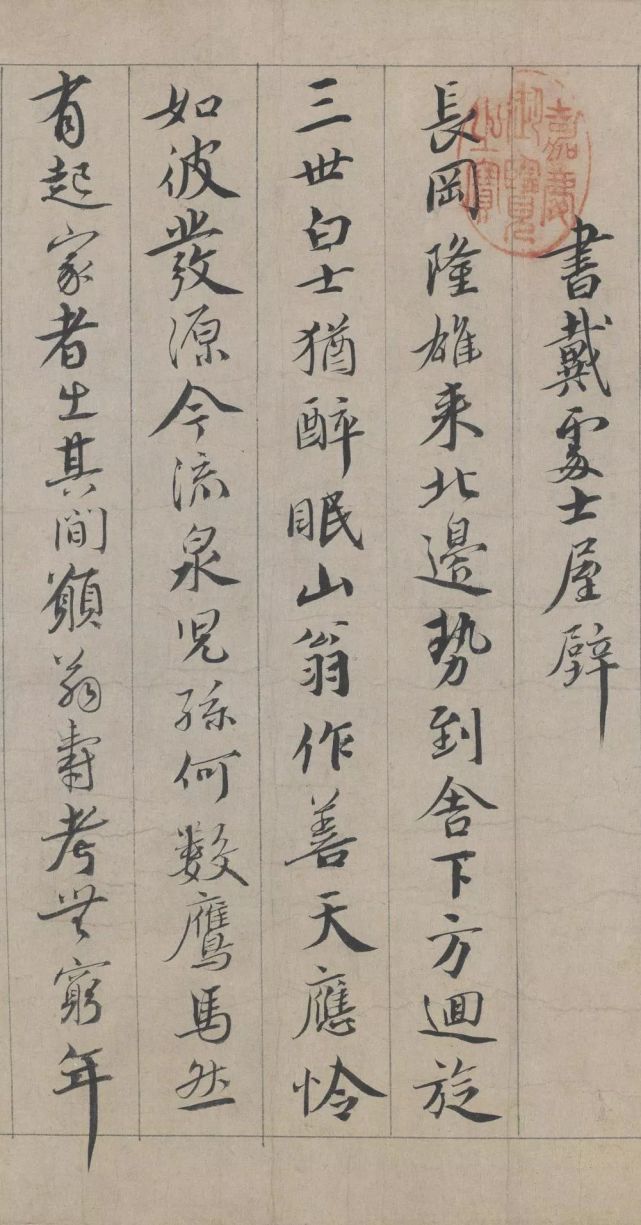 嘉慶御覽之寶
書戴處士屋壁
長岡隆雄来北邉勢到舍下方迴旋
三世白士猶醉眠山翁作善天應怜
如彼發源今流泉兒孫何數鷹馬然
有起家者出其間願翁壽考無窮年